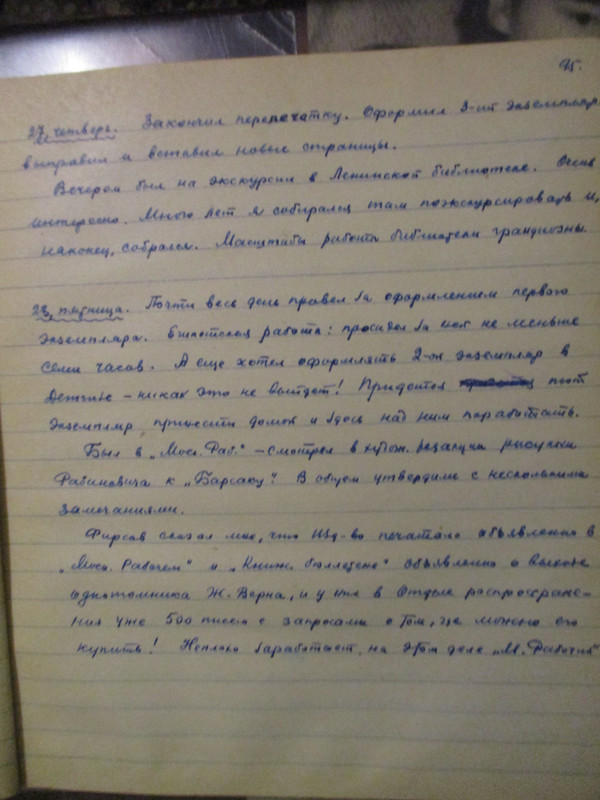 95.
27, четверг. Закончил перепечатку. Оформил 3-ий экземпляр,
выправил и вставил новые страницы.
Вечером был на экскурсии в Ленинской библиотеке. Очень
интересно. Много лет я собирался там поэкскурсировать и,
наконец, собрался. Масштабы работы библиотеки грандиозны.
28, пятница. Почти весь день провел за оформлением первого
экземпляра. Египетская работа: просидел за ней не меньше
семи часов. А еще хотел оформлять 2-ой экземпляр в
Детгизе – никак это не выйдет! Придется этот
экземпляр принести домой и здесь над ним поработать.
Был в „Моск. Раб.“ – смотрел в худож. редакции рисунки
Рабиновича к „Барсаку“. В общем утвердили с несколькими
замечаниями.
Фирсов сказал мне, что Изд-во печатало объявление в
„Моск. Рабочем“ и „Книж. бюллетене“ объявление о выходе
однотомника Ж. Верна, и у них в Отделе распростране-
ния уже 500 писем с запросами о том, где можно его
купить! Неплохо заработает на этом деле „М. Рабочий“